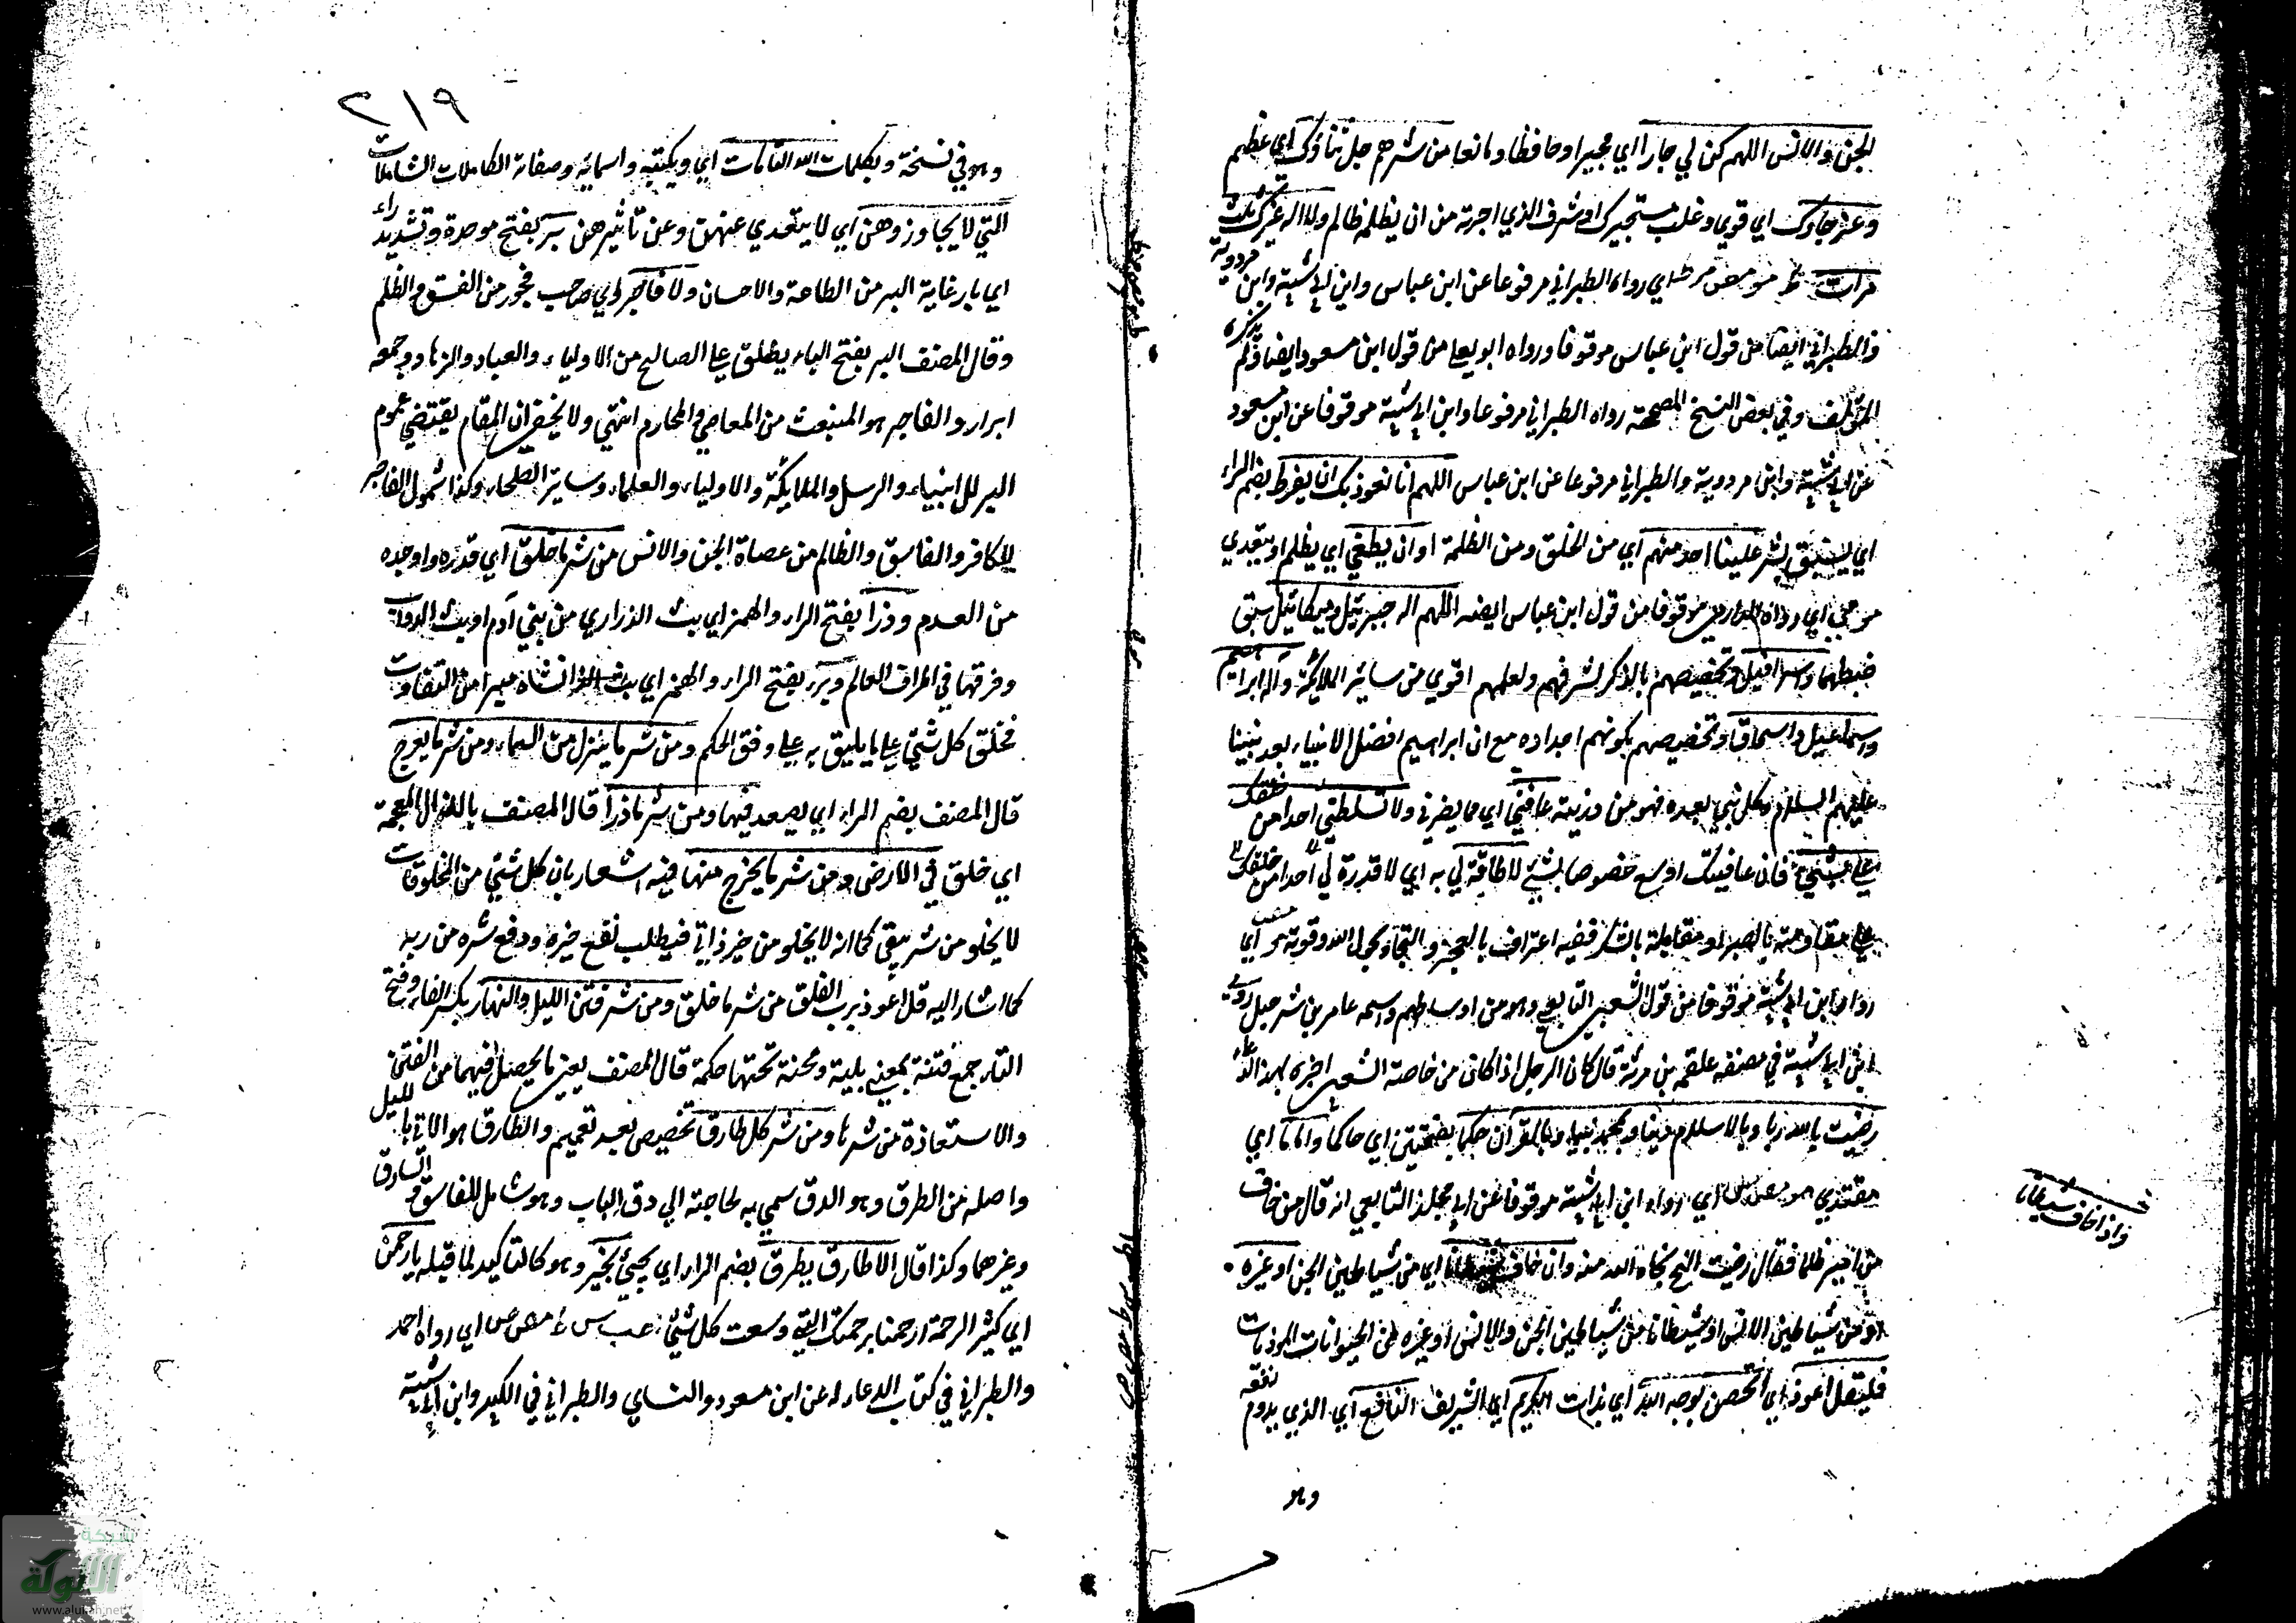 الجن والانس اللهم كن لي جارا اي مجيرا وحافظا ومانعا من شرهم جل ثناؤك اي عظم
وعز جارك اي قوي وغلب مستجيرك او شرف الذي اجرته من ان يظلمه ظالم ولا اله غيرك ثلث
مرات ط مو مص مر اي رواه الطبراني مرفوعا عن ابن عباس وابن ابي شيبة وابن مردوية
والطبراني ايضا من قول ابن عباس موقوفا ورواه ابو يعلى من قول ابن مسعود ايضا ولم يذكره
المؤلف وفي بعض النسخ المصححة رواه الطبراني مرفوعا وابن ابي شيبة موقوفا عن ابن مسعود
عن ابي شيبة وابن مردوية والطبراني مرفوعا عن ابن عباس اللهم انا نعوذ بك ان يفرط بضم الراء
اي يسبق بشر علينا احد منهم اي من الخلق ومن الظلمة او ان يطغى اي يظلم او يتعدي
مو مي اي رواه الدارمي موقوفا من قول ابن عباس ايضا اللهم اله جبرئيل وميكائيل سبق
ضبطهما واسرافيل وتخصيصهم بالذكر لشرفهم ولعلهم اقوي من سائر الملائكة واله ابراهيم
واسماعيل واسحاق وتخصيصهم بكونهم اجداده مع ان ابراهيم افضل الانبياء بعد نبينا
عليهم السلام وكل نبي بعده فهو من ذريته عافني اي مما يضرني ولا تسلطن احدا من خلقك
علي بشيء فان عافيتك اوسع خصوصا بشيء لا طاقة لي به اي لا قدرة لي احدا من خلقك
علي مقاومته بالصبر او مقابلته بالشكر ففيه اعتراف بالعجز والتجاء بحول الله وقوته مو مص اي
رواه ابن ابي شيبة موقوفا من قول الشعبي التابعي وهو من اوساطهم واسمه عامر بن شرحبيل روي
ابن ابي شيبة في مصنفه علقمه بن مرثد قال كان الرجل اذا كان من خاصة الشعبي اخبره بهذا الدعاء
رضيت بالله ربا وبالاسلام دينا وبمحمد نبيا وبالقرآن حكما بفتحتين اي حاكما واماما اي
مقتدي مو مص اي رواه ابن ابي شيبة موقوفا عن ابي مجلز التابعي انه قال من خاف
من امير ظلما فقال رضيت الخ نجاه الله منه وان خاف شيطانا اي من شياطين الجن او غيره
او من شياطين الانس او شيطانا من شياطين الجن والانس او غيره من الحيوانات الموذيات
فليقل اعوذ اي اتحصن بوجه الله اي بذات الكريم اي الشريف النافع اي الذي يدوم نفعه
وهو
واذا خاف شيطانا
٢١٩
وهو في نسخة وبكلمات الله التامات اي وبكتبه واسمائه وصفاته الكاملات الشاملات
التي لا يجاوزهن اي لا يتعدي عنهن وعن تأثيرهن بر بفتح موحدة وتشديد راء
اي بار غاية البر من الطاعة والاحسان ولا فاجر اي صاحب فجور من الفسق والظلم
وقال المصنف البر بفتح الباء يطلق على الصالح من الاولياء والعباد والزهاد وجمعه
ابرار والفاجر هو المنبعث من المعاصي والمحارم انتهى ولا يخفى ان المقام يقتضي عموم
البر للانبياء والرسل والملائكة والاولياء والعلماء وسائر الصلحاء وكذا شمول الفاجر
للكافر والفاسق والظالم من عصاة الجن والانس من شر ما خلق اي قدره واوجده
من العدم وذرأ بفتح الراء والهمز اي بث الذراري من بني آدم او بث الدواب
وفرقها في اطراف العالم وبرأ بفتح الراء والهمز اي انشاه مبرا من التفاوت
فخلق كل شيء على ما يليق به على وفق الحكم ومن شر ما ينزل من السماء ومن شر ما يعرج
قال المصنف بضم الراء اي يصعد فيها ومن شر ما ذرأ قال المصنف بالذال المعجمة
اي خلق في الارض ومن شر ما يخرج منها فيه اشعار بان كل شيء من المخلوقات
لا يخلو من شر يبقى كما انه لا يخلو من خير ذاتي فيطلب نفع خيره ودفع شره من ربه
كما اشار اليه قل اعوذ برب الفلق من شر ما خلق ومن شر فتن الليل والنهار بكسر الفاء وفتح
التاء جمع فتنة بمعنى بلية ومحنة تحتها حكمة قال المصنف يعني ما يحصل فيهما من الفتن
والاستعاذة من شرها ومن شر كل طارق تخصيص بعد تعميم والطارق هو الاتي بالليل
واصله من الطرق وهو الدق سمي به لحاجته الي دق الباب وهو شامل للفاسق والسارق
وغيرهما وكذا قال الا طارق يطرق بضم الراء اي يجيئ بخير وهو كالتاكيد لما قبله يا رحمن
اي كثير الرحمة ارحمنا برحمتك التي وسعت كل شيء عب س ط مص ص اي رواه احمد
والطبراني في كتاب الدعاء له عن ابن مسعود والنساي والطبراني في الكبير وابن ابي شيبة
شبكة
الألوكة
www.alukah.net